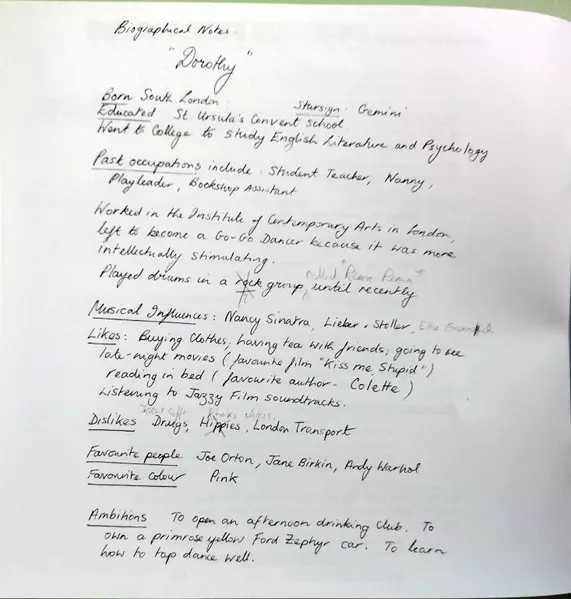 Biographical Notes.
"Dorothy"
Born South London. Starsign: Gemini
Educated St. Ursula's Convent School.
Went to College to study English Literature and Psychology
Past occupations include: Student Teacher, Nanny,
Playleader, Bookshop Assistant
Worked in the Institute of Contemporary Arts in London,
left to become a Go-Go Dancer because it was more
intellectually stimulating.
called "Rema Rema"
Played drums in a rock group until recently
Musical Influences: Nancy Sinatra, Lieber & Stoller, Ella
Likes: Buying Clothes, having tea with friends, going to see
late-night movies (favourite film "Kiss me, Stupid")
reading in bed (favourite author - Colette)
Listening to Jazzy Film soundtracks.
Dislikes Drugs, Hippies, London Transport
Favourite people Joe Orton, Jane Birkin, Andy Warhol
Favourite colour Pink
Ambitions To open an afternoon drinking club. To
own a primrose yellow Ford Zephyr car. To learn
how to tap dance well.